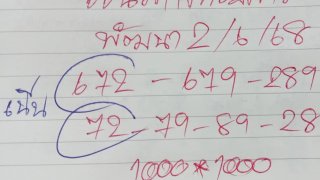 พัฒนา 2/6/68
672 - 679 - 289
เน้น 72 - 79 - 89 - 28
1000*1000